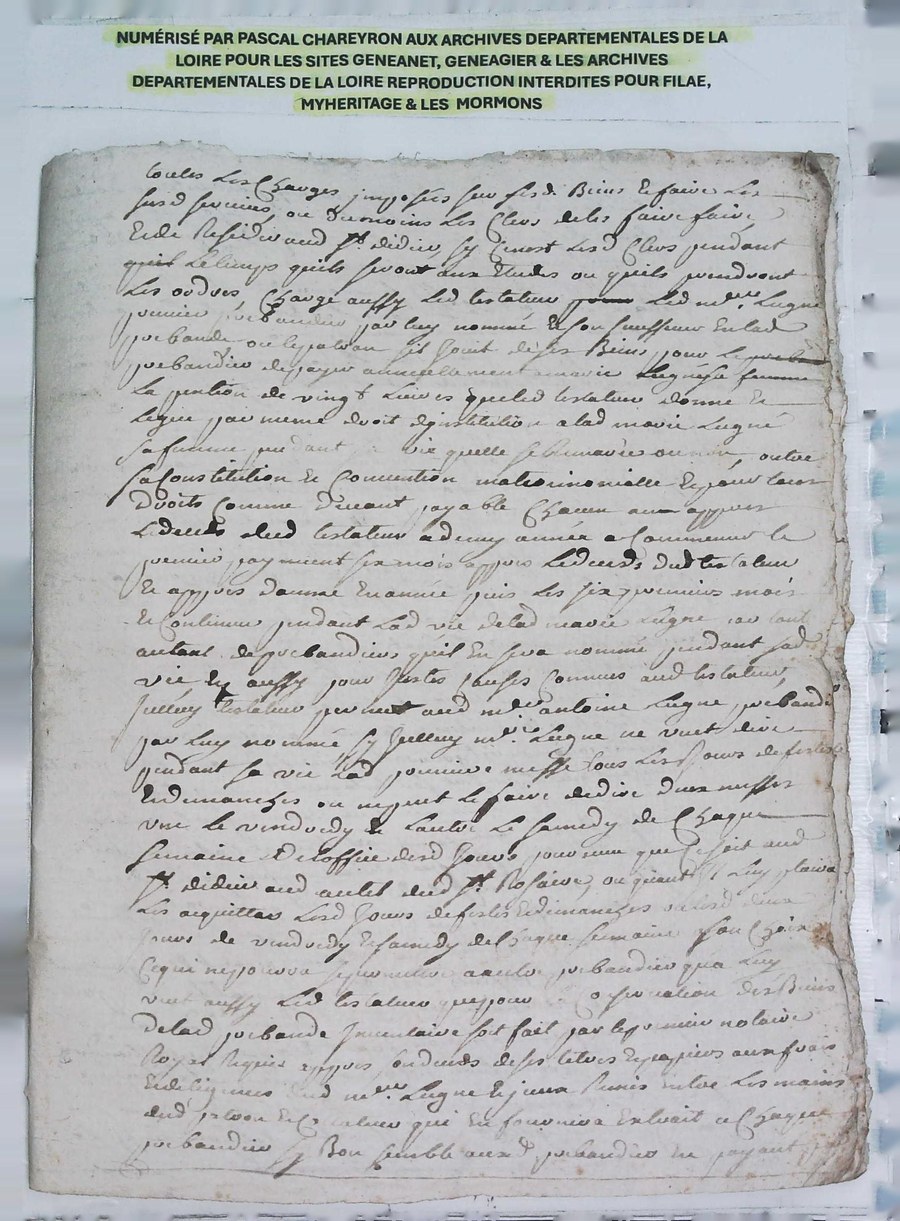 NUMÉRISÉ PAR PASCAL CHAREYRON AUX ARCHIVES DEPARTEMENTALES DE LA
LOIRE POUR LES SITES GENEANET, GENEAGIER & LES ARCHIVES
DEPARTEMENTALES DE LA LOIRE REPRODUCTION INTERDITES POUR FILAE,
MYHERITAGE & LES MORMONS
toutes Les Charges imposées sur sesd. Biens Et faire Les
susd services, ou du moins Les Clers de les faire faire
Et de Resider aud St. didier, sy Ce nest Lesd Clers pendant
Le temps quils seront aux Etudes ou quils prendront
Les ordres, Charge aussy Led testateur Led mre. Lugne
premier prebandier par luy nommé Et son successeur En lad
prebande ou le patron sil jouit desd Biens pour Le
prebandier de payer annuellement a marie Lugné sa femme
La pention de vingt Livres que led testateur donne Et
Legue par meme droit dinstitution a lad marie Lugné
sa femme pendant sa vie quelle se Remarie ou non, outre
sa Constitution Et Convention matrimonialle Et pour tous
droits Comme devant payable Chacun an appres
Le deceds dud testateur a demy année a Commencer le
premier payment six mois appres Le deceds dud testateur
Et appres dannée En année puis Les six premiers mois
Et Continuer pendant Lad vie de lad marie Lugne par tout
autant de prebandiers quil En sera nommé pendant sad
vie Et aussy pour justes Causes Connues aud testateur,
Jcelluy testateur permet aud mre antoine Lugne prebandier
par Luy nommé sy Jcelluy mre. Lugne ne veut dire
pendant sa vie Lad premiere messe tous Les Jours de festes
Et dimanches ou ne peut Le faire de dire deux messes
une Le vendredy Et Lautre Le samedy de Chaque
semaine Et Loffice desd Jours pourveu que Ce soit aud
St. didier aud autel dud St. Rosaire, ou quant il Luy plaira
Les acquitter Lesd Jours de festes Et dimanches ou Lesd deux
Jours de vendredy Et samedy de Chaque semaine a son Choix
Ce qui ne pourra se permettre a autre prebandier qua Luy
veut aussy Led testateur que pour La Conservation des Biens
de lad prebande Jnventaire soit fait par le premier notaire
Royal Requis appres son deceds de ses titres Et papiers aux frais
Et diligences dud mre. Lugne Et jceux Remis Entre Les mains
dud patron Et Collateur qui En fournira Extrait a Chaque
prebandier sy Bon semble auxd prebandiers En payant